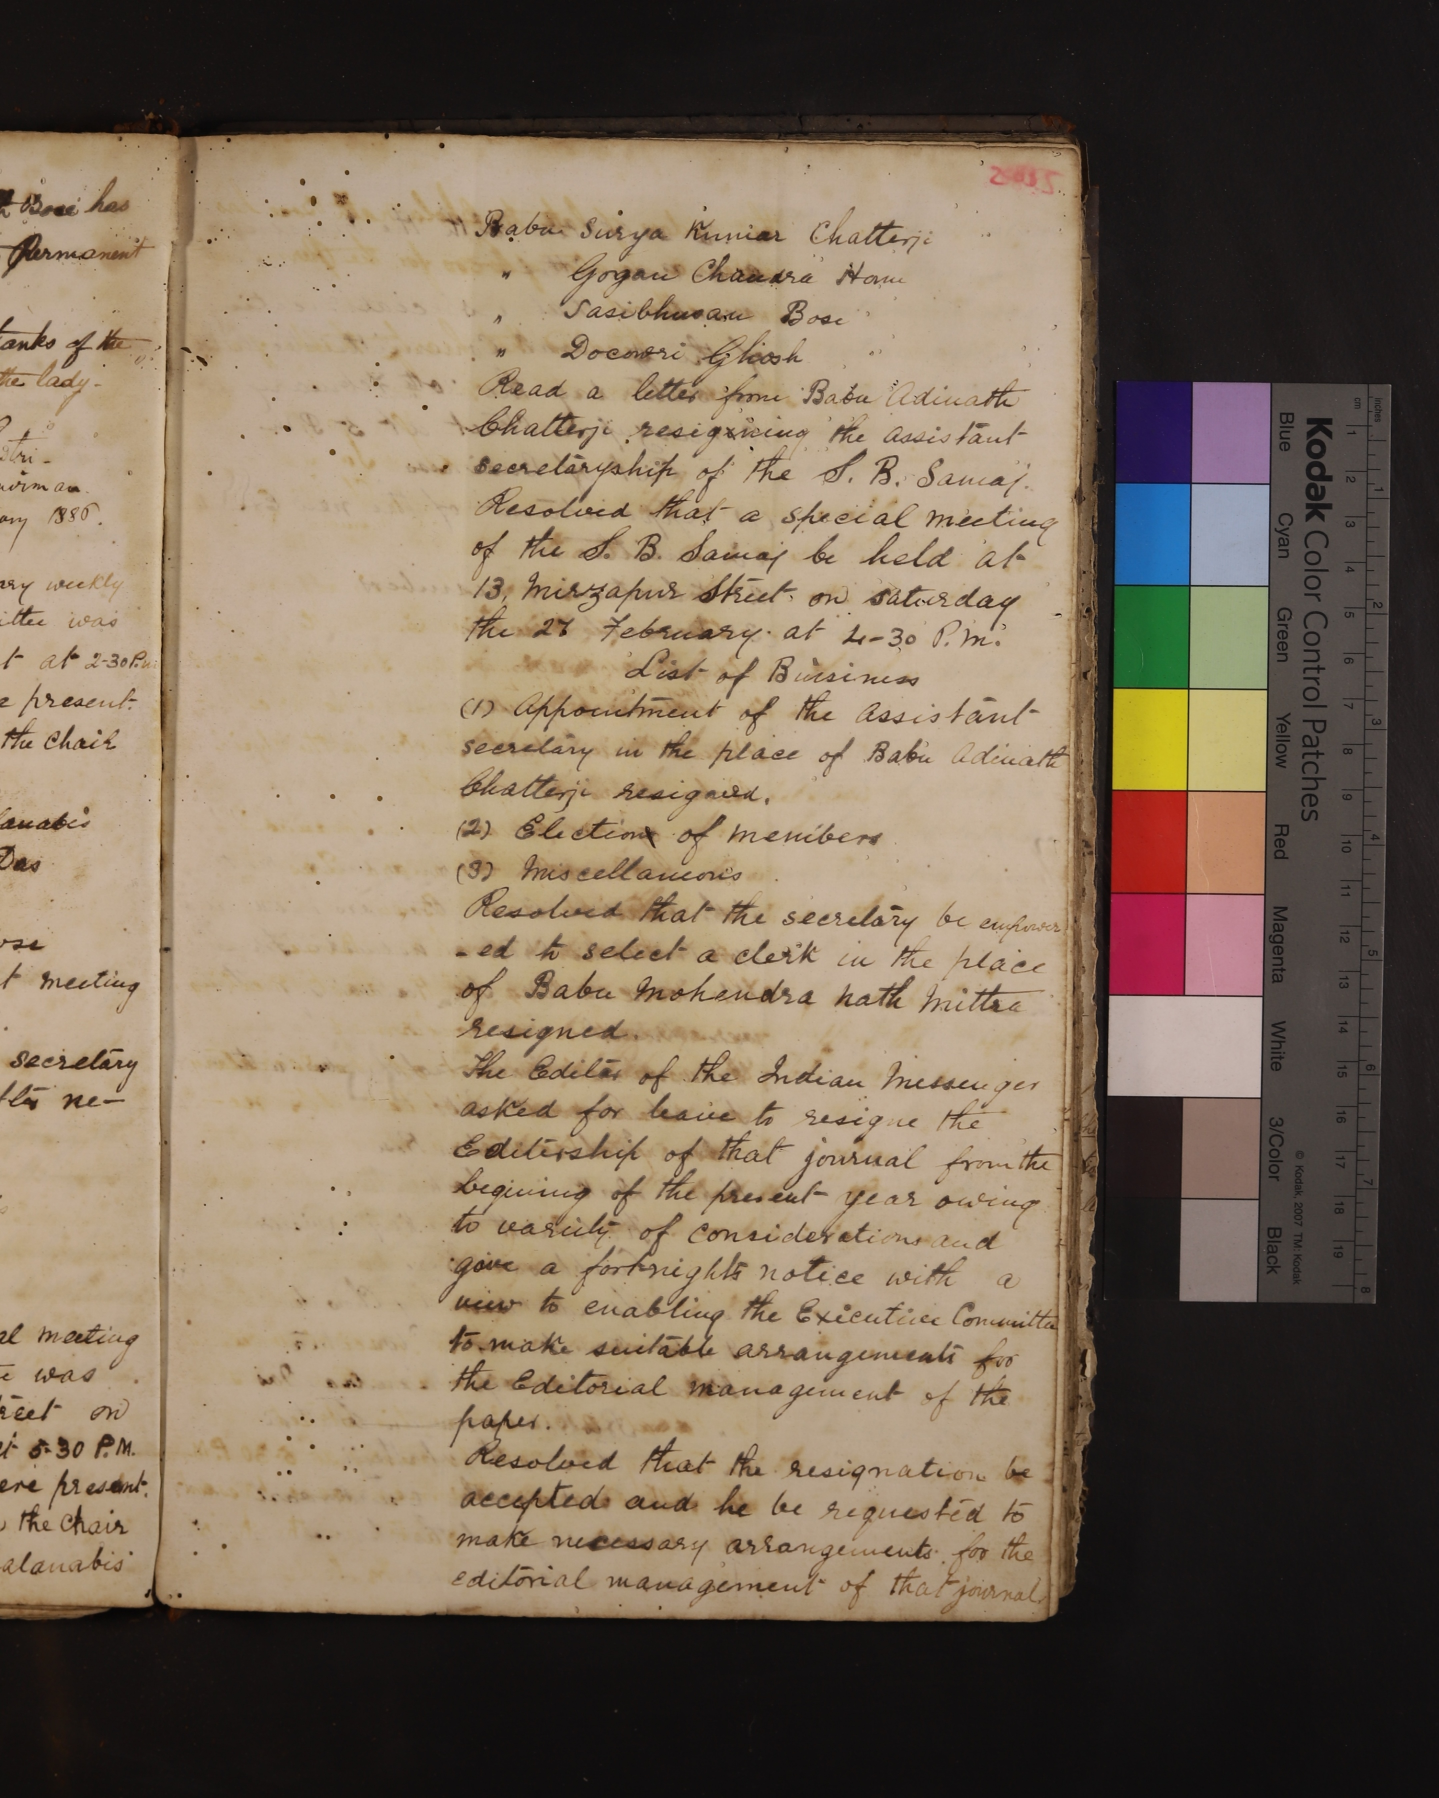 Bose has
Permanent
tanks of the
the lady-
ary weekly
ittee was
t at 2-30 P.M.
e present.
the chair
lanabis
Das
ose
t meeting
secretary
ne-
al meeting
was
reet on
at 5-30 P.M.
ere present.
the chair
alanabis
Babu Surya Kumar Chatterji
" Gogan Chandra Home
" Sasibhusan Bose
" Docowri Ghosh
Read a letter from Babu Adinath
Chatterji resigning the assistant
secretaryship of the S. B. Samaj.
Resolved that a special meeting
of the S. B. Samaj be held at
13, Mirzapur Street on saturday
the 27 February at 4-30 P.M.
List of Buisiness
(1) Appointment of the assistant
secretary in the place of Babu Adinath
Chatterji resigned.
(2) Election of members
(3) Miscellaneous
Resolved that the secretary be empower
-ed to select a clerk in the place
of Babu Mohendra Nath Mittra
resigned.
The Editor of the Indian Messenger
asked for leave to resigne the
Editorship of that journal from the
begining of the present year owing
to variety of considerations and
gave a fortnights notice with a
view to enabling the Executive Committee
to make suitable arrangements for
the Editorial management of the
paper.
Resolved that the resignation be
accepted and he be requested to
make necessary arrangements for the
editorial management of that journal.
Kodak Color Control Patches
Blue Cyan Green Yellow Red Magenta White 3/Color Black
© Kodak, 2007 TM: Kodak
inches 1 2 3 4 5 6 7 8
cm 1 2 3 4 5 6 7 8 9 10 11 12 13 14 15 16 17 18 19